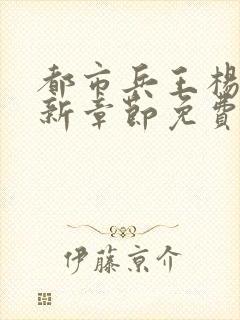 都市兵王楊
新章節免費
伊藤京介